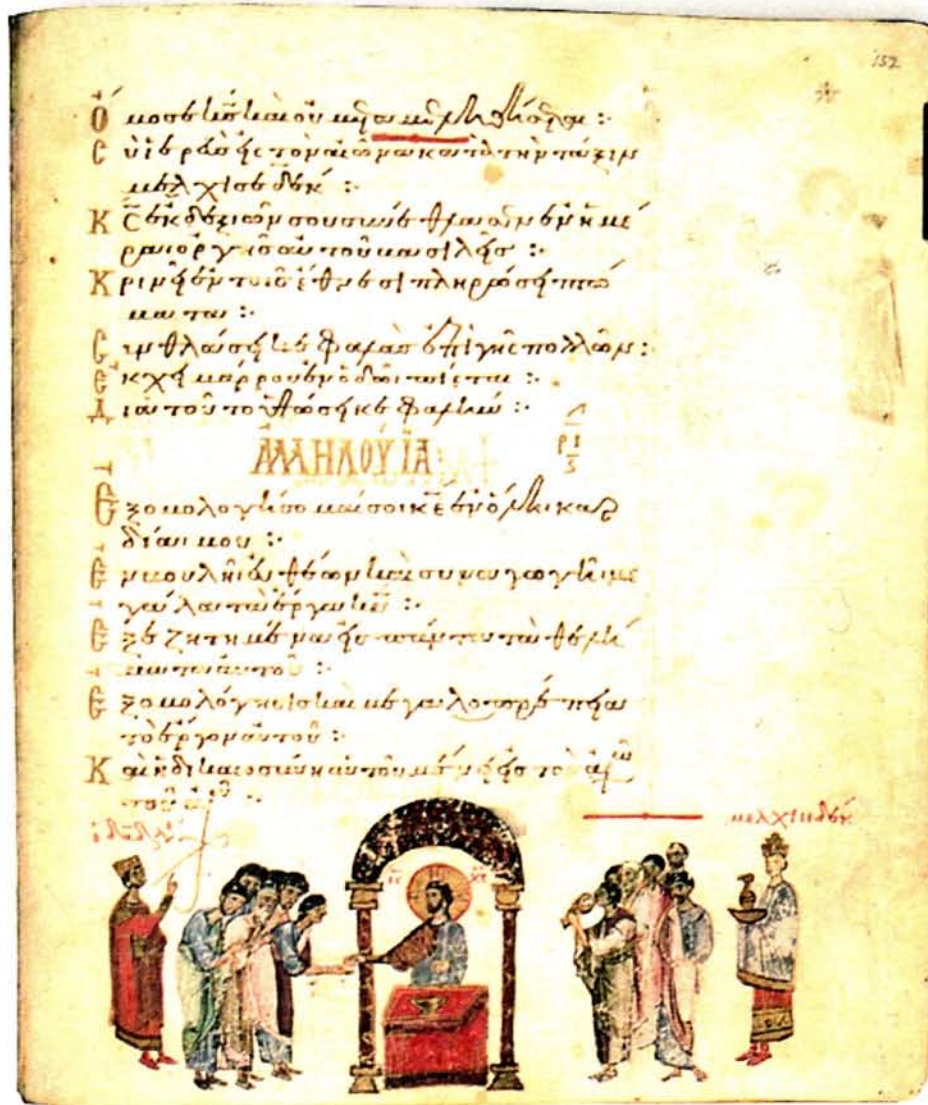 152
Ὅμοσε κ̅ς̅ καὶ οὐ
Σὺ ἱερεὺς εἰς τὸν αἰῶνα κατὰ τὴν τάξιν
μελχισεδέκ :·
Κ̅ς̅ ἐκ δεξιῶν σου συνέθλασεν ἐν ἡμέ
ραι ὀργῆς αὐτοῦ βασιλεῖς :·
Κρινεῖ ἐν τοῖς ἔθνεσι πληρώσει πτώ
ματα :·
Συνθλάσει κεφαλὰς ἐπὶ γῆς πολλῶν :·
Ἐκ χειμάρρου ἐν ὁδῶι πίεται :·
Διὰ τοῦτο ὑψώσει κεφαλήν :·
ἈΛΛΗΛΟΎΪΑ ρι
Ἐξομολογήσομαί σοι κ̅ε̅ ἐν ὅληι καρ
δίαι μου :·
Ἐν βουλῆι εὐθέων καὶ συναγωγῆι με
γάλα τὰ ἔργα κ̅υ̅ :·
Ἐξεζητημένα εἰς πάντα τὰ θελή
ματα αὐτοῦ :·
Ἐξομολόγησις καὶ μεγαλοπρέπεια
τὸ ἔργον αὐτοῦ :·
Καὶ ἡ δικαιοσύνη αὐτοῦ μένει εἰς τὸν αἰῶ
τοῦ αἰ :·
μελχισεδέκ
ΙC ΧC